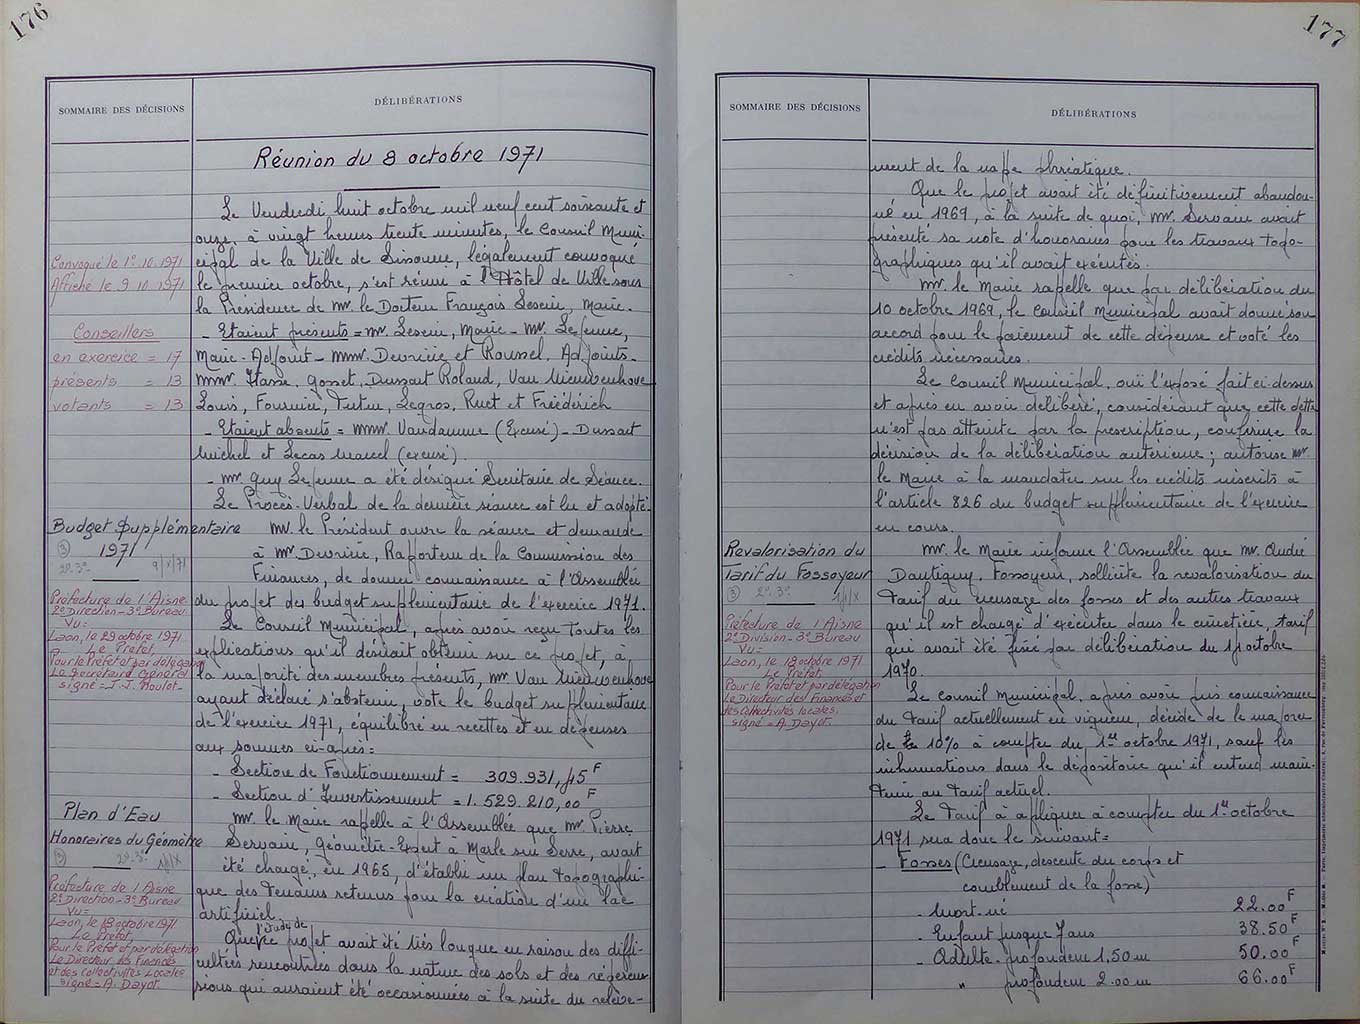 176
SOMMAIRE DES DÉCISIONS
DÉLIBÉRATIONS
Réunion du 8 octobre 1971
Le Vendredi huit octobre mil neuf cent soixante et
onze, à vingt heures trente minutes, le Conseil Muni-
cipal de la Ville de Sissonne, légalement convoqué
le premier octobre, s'est réuni à l'Hôtel de Ville sous
la Présidence de Mr. le Docteur François Lesein, Maire.
Convoqué le 1°.10.1971
Affiché le 9.10.1971
Conseillers
en exercice = 17
présents = 13
votants = 13
- Etaient présents = Mr. Lesein, Maire - Mr. Lefeune,
Maire-Adjoint - MMr. Devriere et Roussel, Adjoints -
MMr. Hasse, Gosset, Dussart Roland, Van Nieuwenhove
Louis, Fournier, Tutin, Legros, Ruet et Friédérich
- Etaient absents = MMr. Vandamme (Excusé) - Dussart
Michel et Lecas Marcel (excusé).
- Mr Guy Lefeune a été désigné Secrétaire de Séance.
Le Procès-Verbal de la dernière séance est lu et adopté.
Budget Supplémentaire
1971
(3)
2°.3°.
9/X/71
Préfecture de l'Aisne
2° Direction - 3° Bureau
Vu =
Laon, le 29 octobre 1971
Le Préfet,
Pour le Préfet et par délégation
Le Secrétaire Général
signé = J.J. Moulot -
Mr. le Président ouvre la séance et demande
à Mr Devriere, Rapporteur de la Commission des
Finances, de donner connaissance à l'Assemblée
du projet du budget supplémentaire de l'exercice 1971.
Le Conseil Municipal, après avoir reçu toutes les
explications qu'il désirait obtenir sur ce projet, à
la majorité des membres présents, Mr Van Nieuwenhove
ayant déclaré s'abstenir, vote le budget supplémentaire
de l'exercice 1971, équilibré en recettes et en dépenses
aux sommes ci-après =
- Section de Fonctionnement = 309.931,45 F
- Section d'Investissement = 1.529.210,00 F
Plan d'Eau
Honoraires du Géomètre
(3)
2°.3°.
Préfecture de l'Aisne
2° Direction - 3° Bureau
Vu =
Laon, le 18 octobre 1971
Le Préfet,
Pour le Préfet et par délégation
Le Directeur des Finances
et des Collectivités Locales
signé = A. Dayot.
Mr. le Maire rapelle à l'Assemblée que Mr. Pierre
Servain, Géomètre-Expert à Marle sur Serre, avait
été chargé, en 1965, d'établir un plan topographi-
que des terrains retenus pour la création d'un lac
artificiel.
Que l'étude de ce projet avait été très longue en raison des diffi-
cultées rencontrées dans la nature des sols et des répercus-
sions qui auraient été occasionnées à la suite du relève-
177
SOMMAIRE DES DÉCISIONS
DÉLIBÉRATIONS
ment de la nappe phréatique.
Que le projet avait été définitivement abandon-
né en 1969, à la suite de quoi, Mr. Servain avait
présenté sa note d'honoraires pour les travaux topo-
graphiques qu'il avait exécutés.
Mr. le Maire rapelle que par délibération du
10 octobre 1969, le Conseil Municipal avait donné son
accord pour le paiement de cette dépense et voté les
crédits nécessaires.
Le Conseil Municipal, ouï l'exposé fait ci-dessus
et après en avoir délibéré, considérant que cette dette
n'est pas atteinte par la prescription, confirme la
décision de la délibération antérieure ; autorise Mr.
le Maire à la mandater sur les crédits inscrits à
l'article 826 du budget supplémentaire de l'exercice
en cours.
Revalorisation du
Tarif du Fossoyeur
(3)
2°.3°.
Préfecture de l'Aisne
2° Division - 3° Bureau
Vu =
Laon, le 18 octobre 1971
Le Préfet
Pour le Préfet et par délégation
Le Directeur des Finances et
des Collectivités Locales,
signé = A. Dayot.
Mr. le Maire informe l'Assemblée que Mr. André
Dautigny, Fossoyeur, sollicite la revalorisation du
tarif du creusage des fosses et des autres travaux
qu'il est chargé d'exécuter dans le cimetière, tarif
qui avait été fixé par délibération du octobre
1970.
Le Conseil Municipal, après avoir pris connaissance
du tarif actuellement en vigueur, décide de le majorer
de 10% à compter du 1er octobre 1971, sauf les
inhumations dans le dépositoire qu'il entend main-
tenir au tarif actuel.
Le Tarif à appliquer à compter du 1er octobre
1971 sera donc le suivant =
- Fosses (Creusage, descente du corps et
comblement de la fosse)
- Mort-né 22.00 F
- Enfant jusque 7 ans 38.50 F
- Adulte - profondeur 1.50 m 50.00 F
" profondeur 2.00 m 66.00 F